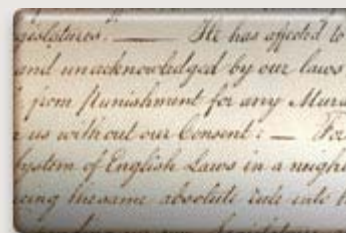 gislatures. —— He has affected to
and unacknowledged by our laws
from Punishment for any Murd
us without our Consent: — For
System of English Laws in a neighb
cing the same absolute rule into th